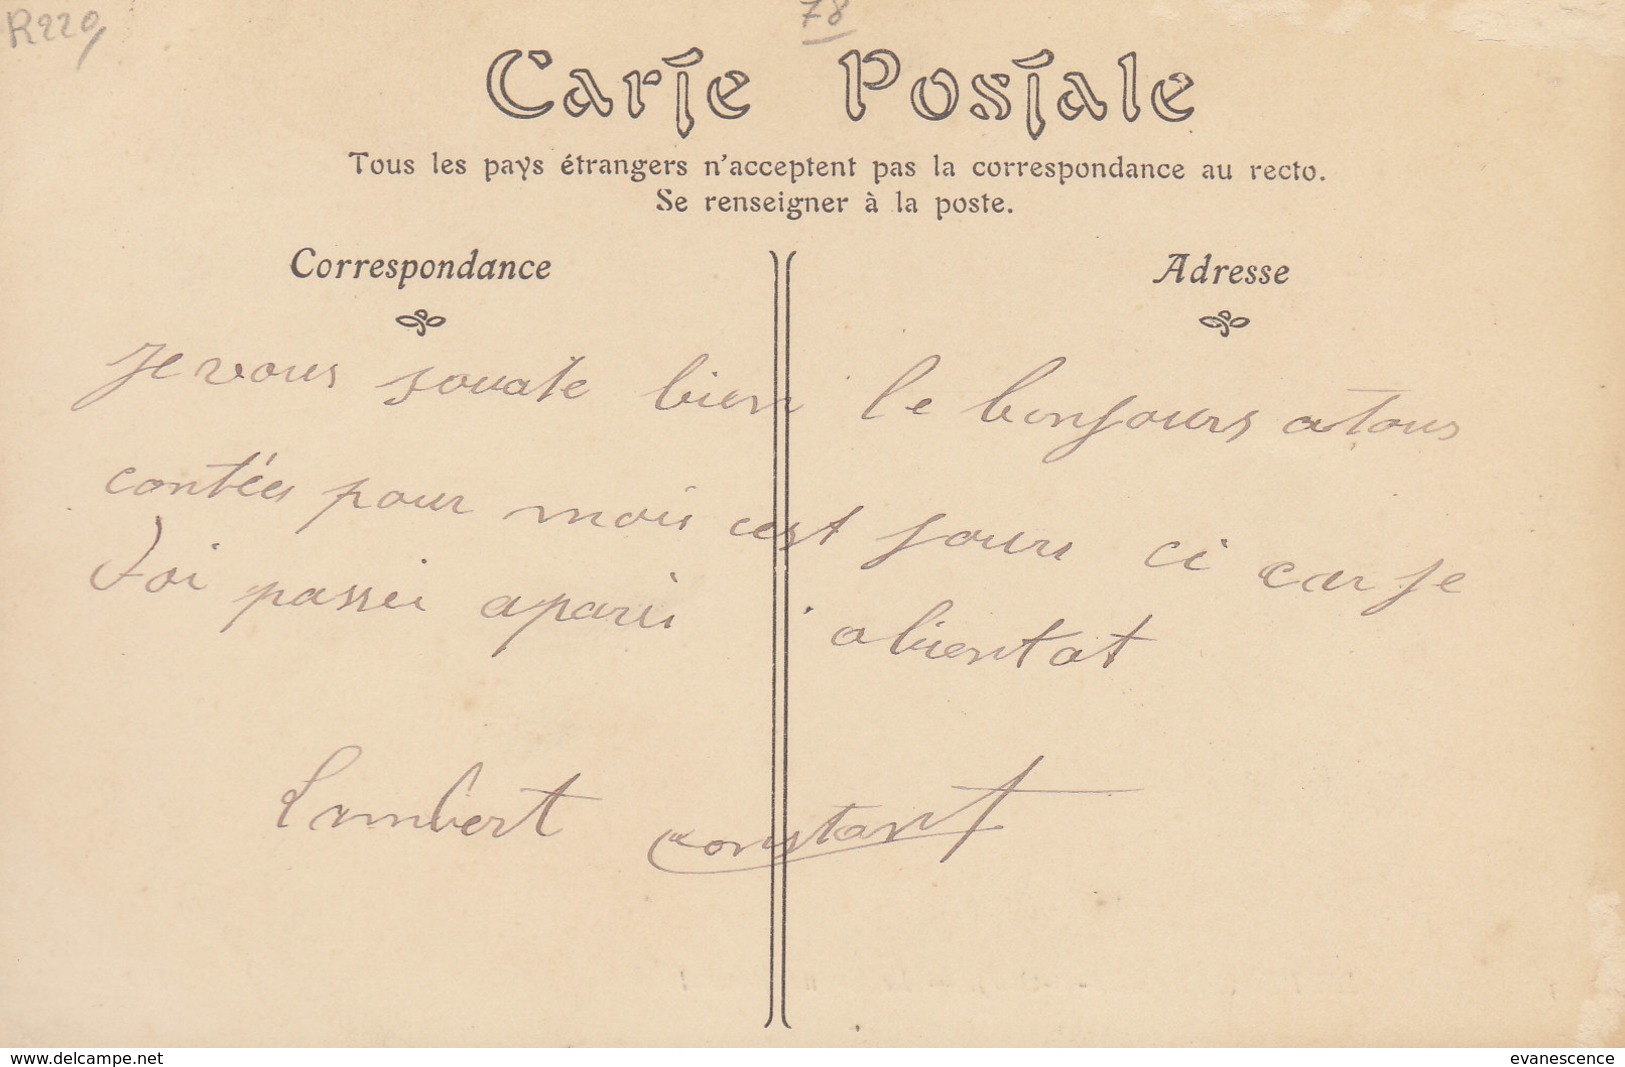 R220
78
Carte Postale
Tous les pays étrangers n'acceptent pas la correspondance au recto.
Se renseigner à la poste.
Correspondance
Adresse
Je vous souate bien le bonjours a tous
contées pour mois cest jours ci car je
doi passer a paris abientat
Lambert constant
www.delcampe.net
evanescence